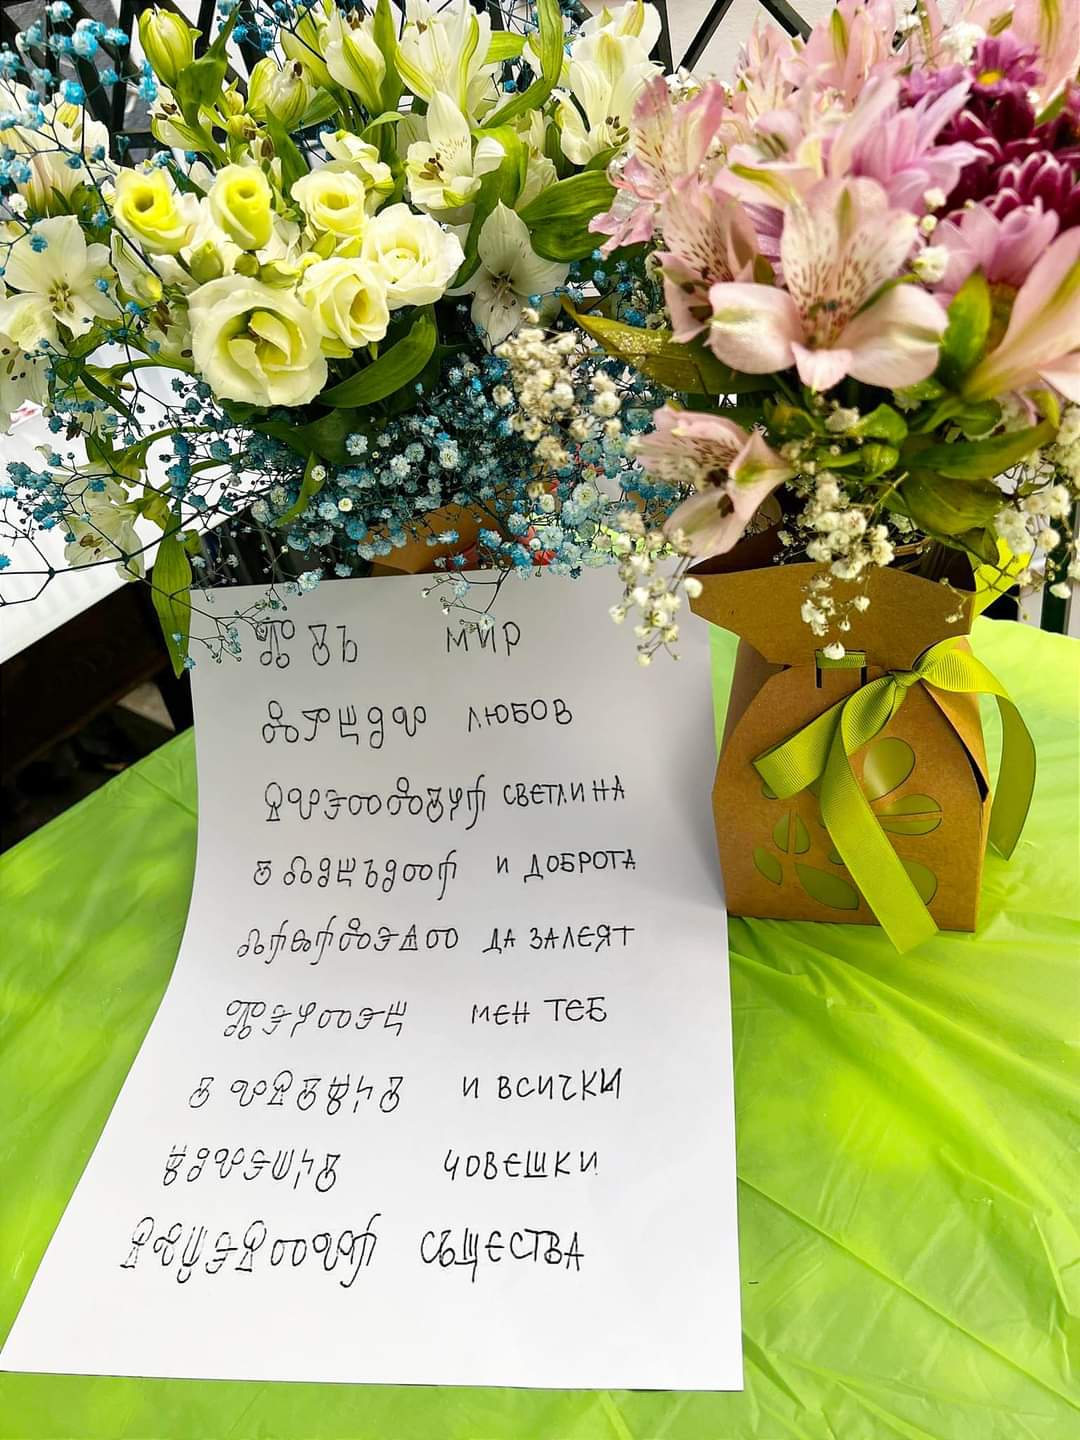 ⰏⰋⰓ МИР
ⰎⰣⰁⰑⰂ ЛЮБОВ
ⰔⰂⰅⰕⰎⰋⰐⰀ СВЕТЛИНА
Ⰻ ⰄⰑⰁⰓⰑⰕⰀ И ДОБРОТА
ⰄⰀⰈⰀⰎⰅⰡⰕ ДА ЗАЛЕЯТ
ⰏⰅⰐⰕⰅⰁ МЕН ТЕБ
Ⰻ ⰂⰔⰋⰝⰍⰋ И ВСИЧКИ
ⰝⰑⰂⰅⰞⰍⰋ ЧОВЕШКИ
ⰔⰟⰛⰅⰔⰕⰂⰀ СЪЩЕСТВА